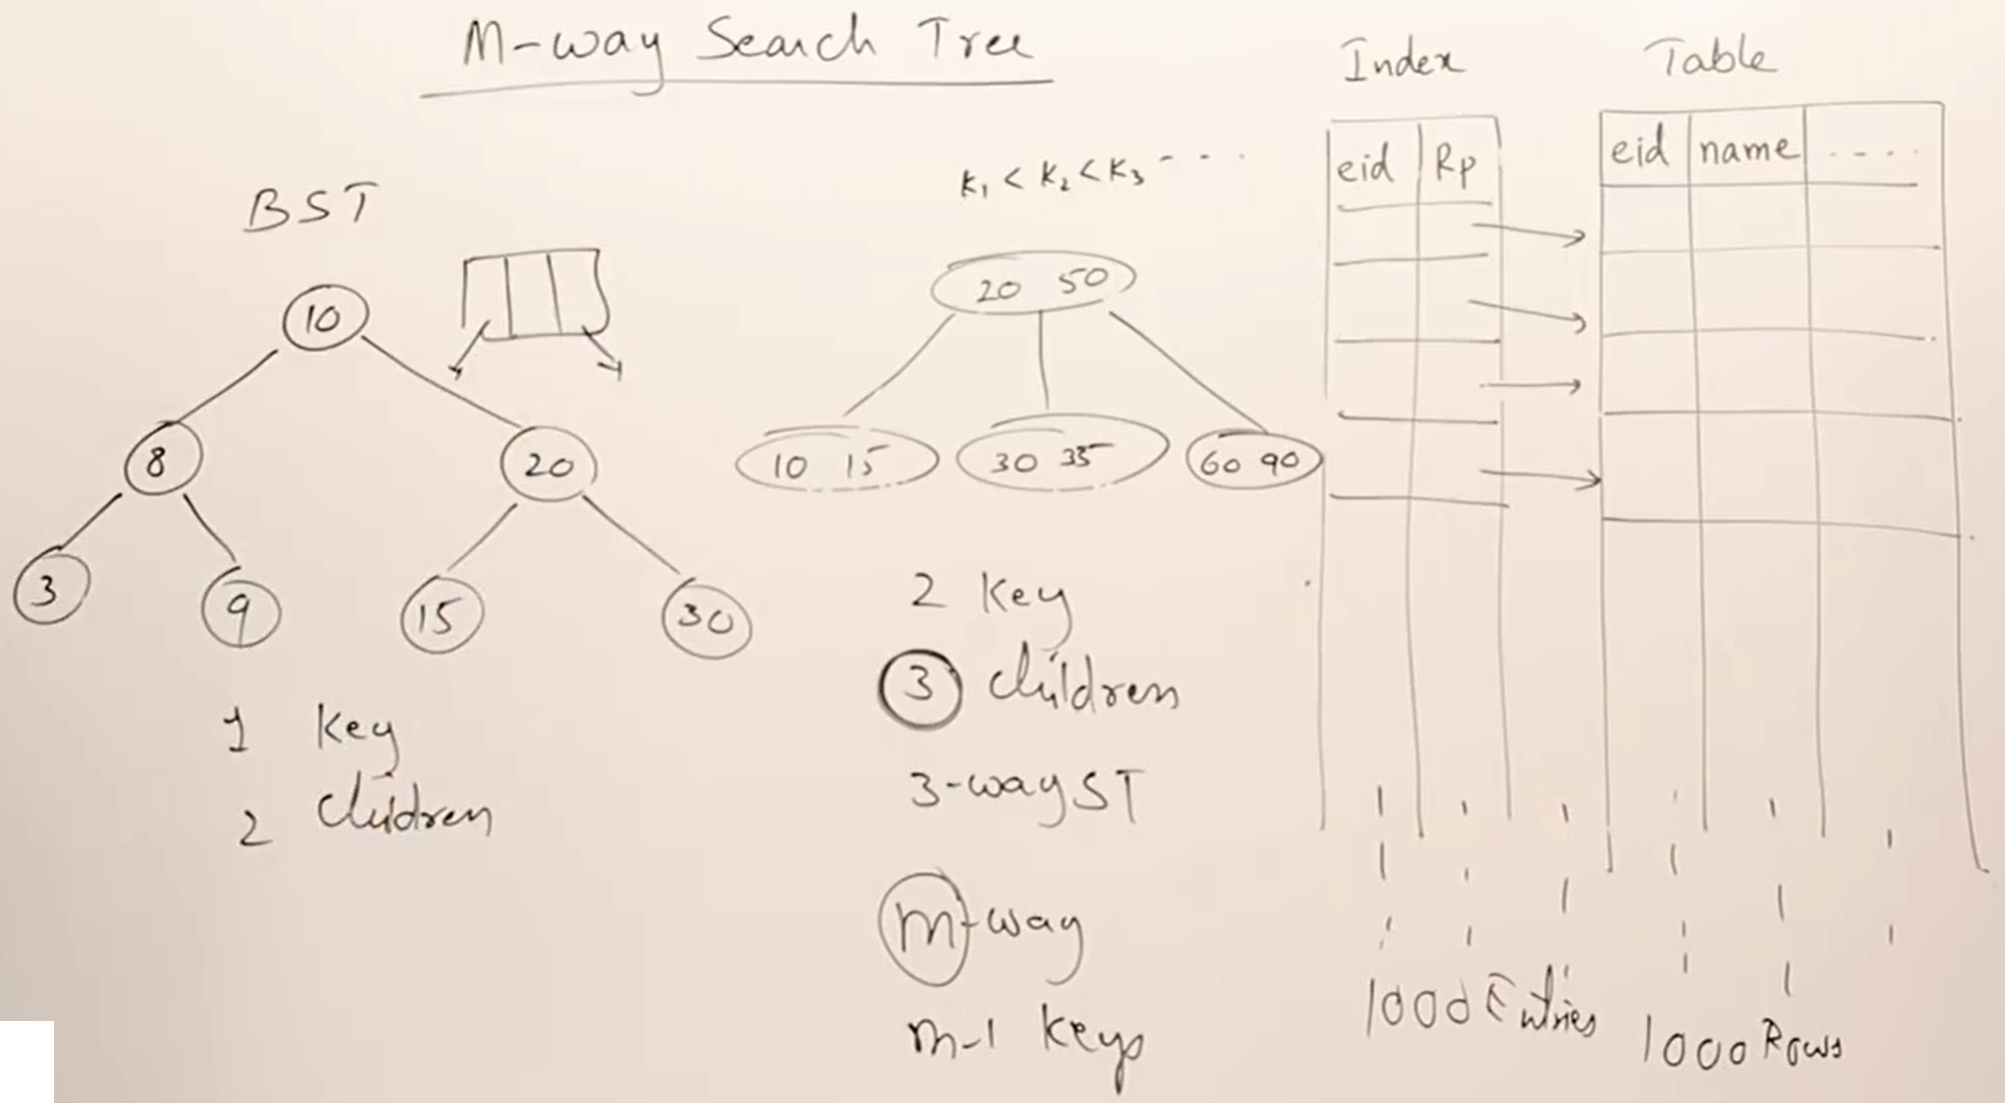 M-way Search Tree
BST
10
8 20
3 9 15 30
1 Key
2 Children
K₁ < K₂ < K₃ - - - .
20 50
10 15 30 35 60 90
2 Key
3 Children
3-way ST
m-way
m-1 Keys
Index
eid Rp
1000 Entries
Table
eid name ....
1000 Rows